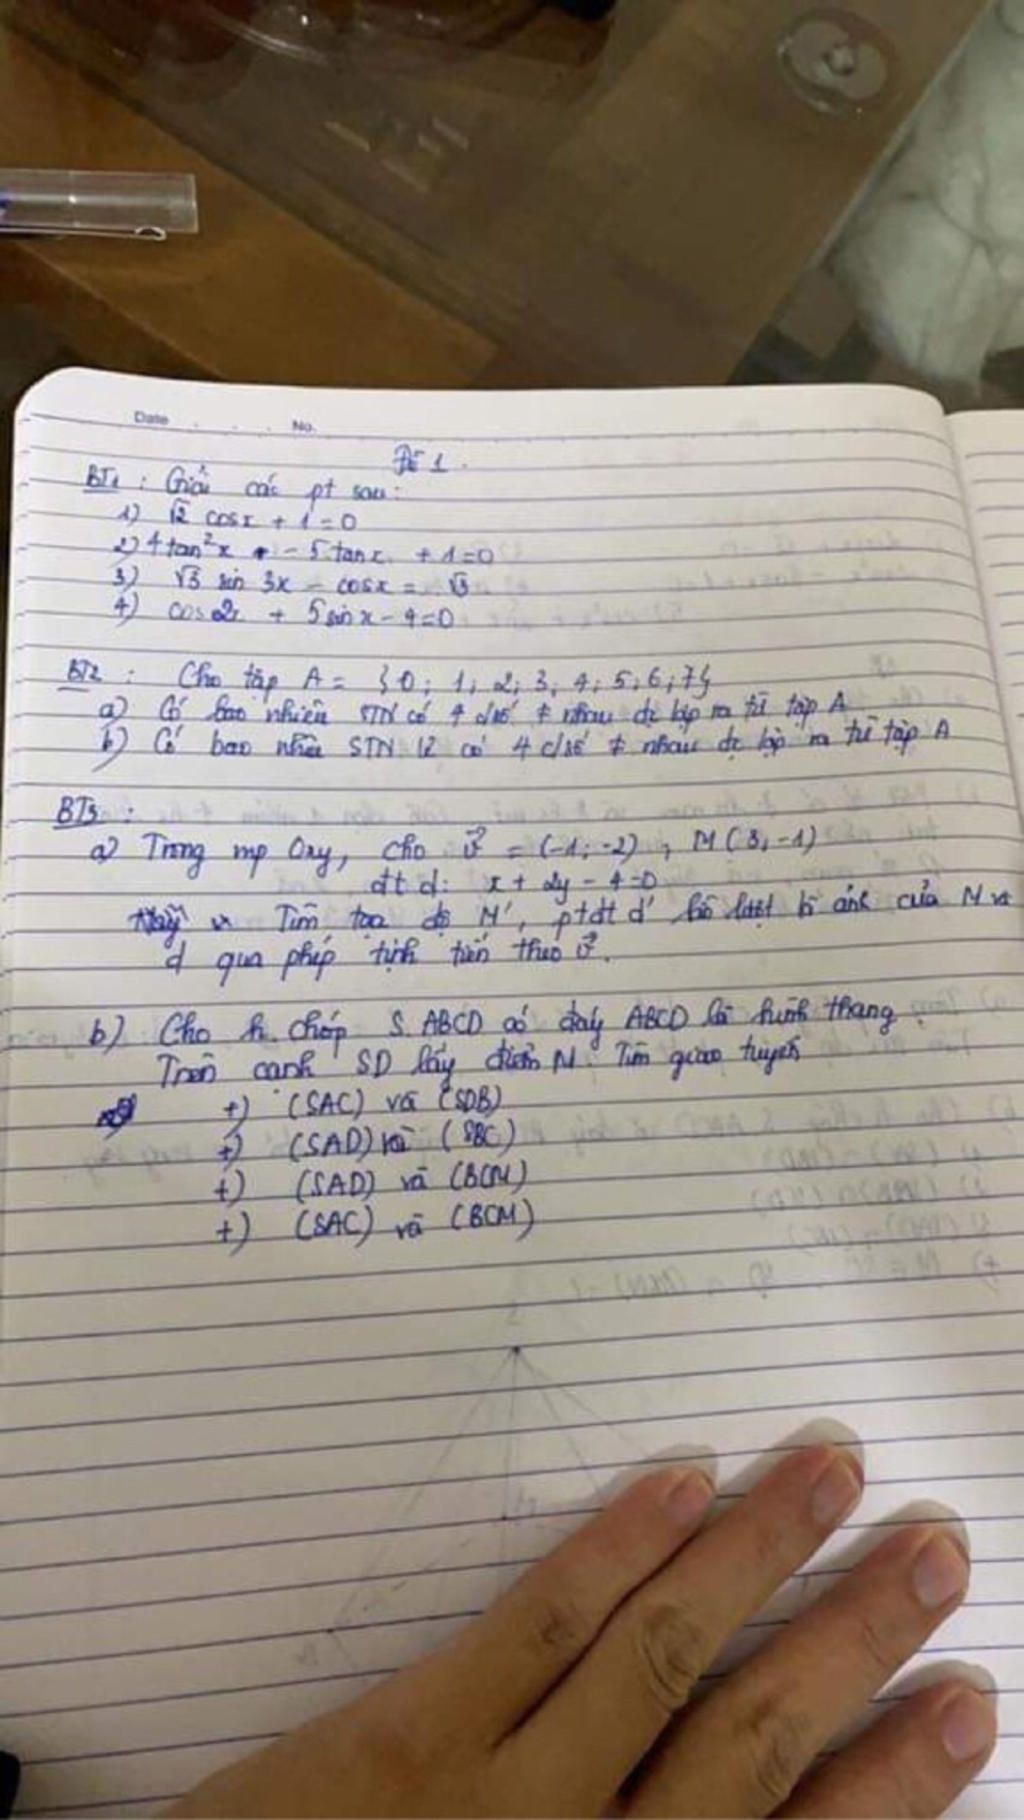 Date No.
Đề 1.
BT1 : Giải các pt sau:
1) √2 cosx + 1 = 0
2) 4tan²x - 5 tanx + 1=0
3) √3 sin 3x - cosx = √3
4) cos 2x + 5 sin x - 4 = 0
BT2 : Cho tập A = {0; 1; 2; 3; 4; 5; 6; 7}
a) Có bao nhiêu STN có 4 c/số ≠ nhau đc lập ra từ tập A
b) Có bao nhiêu STN lẻ có 4 c/số ≠ nhau đc lập ra từ tập A
BT3 :
a) Trong mp Oxy, cho v⃗ = (-1; -2) , M (3; -1)
đt d: x + 2y - 4=0
Tìm tọa độ M', ptđt d' lần lượt là ảnh của M và
d qua phép tịnh tiến theo v⃗.
b) Cho h. chóp S.ABCD có đáy ABCD là hình thang.
Trên cạnh SD lấy điểm M. Tìm giao tuyến
+) (SAC) và (SDB)
+) (SAD) và (SBC)
+) (SAD) và (BCM)
+) (SAC) và (BCM)